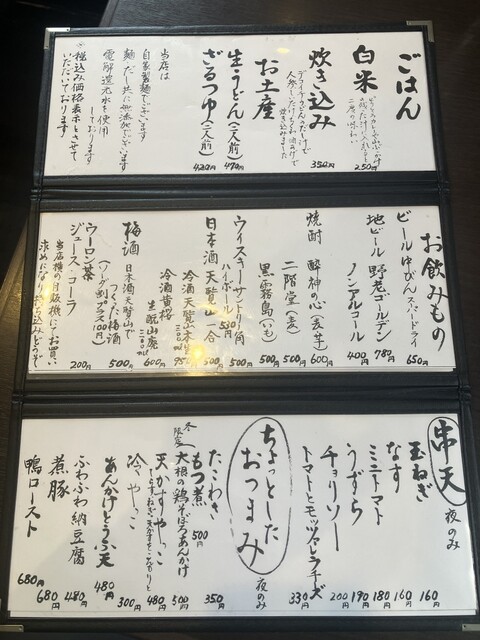 ごはん
白米
250円
炊き込み
350円
お土産
生うどん(一人前)
470円
ざるつゆ(一人前)
420円
当店は
自家製麺でございます
麺だし共に無添加でございます
電解還元水を使用
しております
※税込み価格表示とさせて
いただいております
お飲みもの
ビール 中びん スーパードライ
650円
地ビール 野老ゴールデン
780円
ノンアルコール
400円
焼酎 酔神の心(麦・芋)
600円
二階堂(麦)
500円
黒霧島(いも)
500円
ウイスキー サントリー角
500円
ハイボール
530円
日本酒 天覧山 一合
500円
梅酒
日本酒天覧山で
つくった梅酒
500円
(ソーダ割プラス100円)
ウーロン茶
ジュース・コーラ
200円
当店横の自販機にてお買い
求めになり持ち込みどうぞ
串天
夜のみ
玉ねぎ
160円
なす
160円
ミニトマト
180円
うずら
190円
チョリソー
200円
トマトとモッツァレラチーズ
330円
ちょっとした
おつまみ
夜のみ
たこわさ
350円
もつ煮
500円
冬
限定
大根の鶏そぼろあんかけ
500円
天かすやっこ
480円
冷やっこ
300円
あんかけとうふ天
480円
ふわふわ納豆腐
480円
煮豚
680円
鴨ロースト
680円